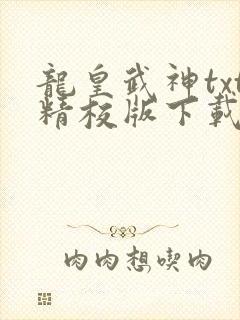 龍皇武神txt
精校版下載
肉肉想喫肉